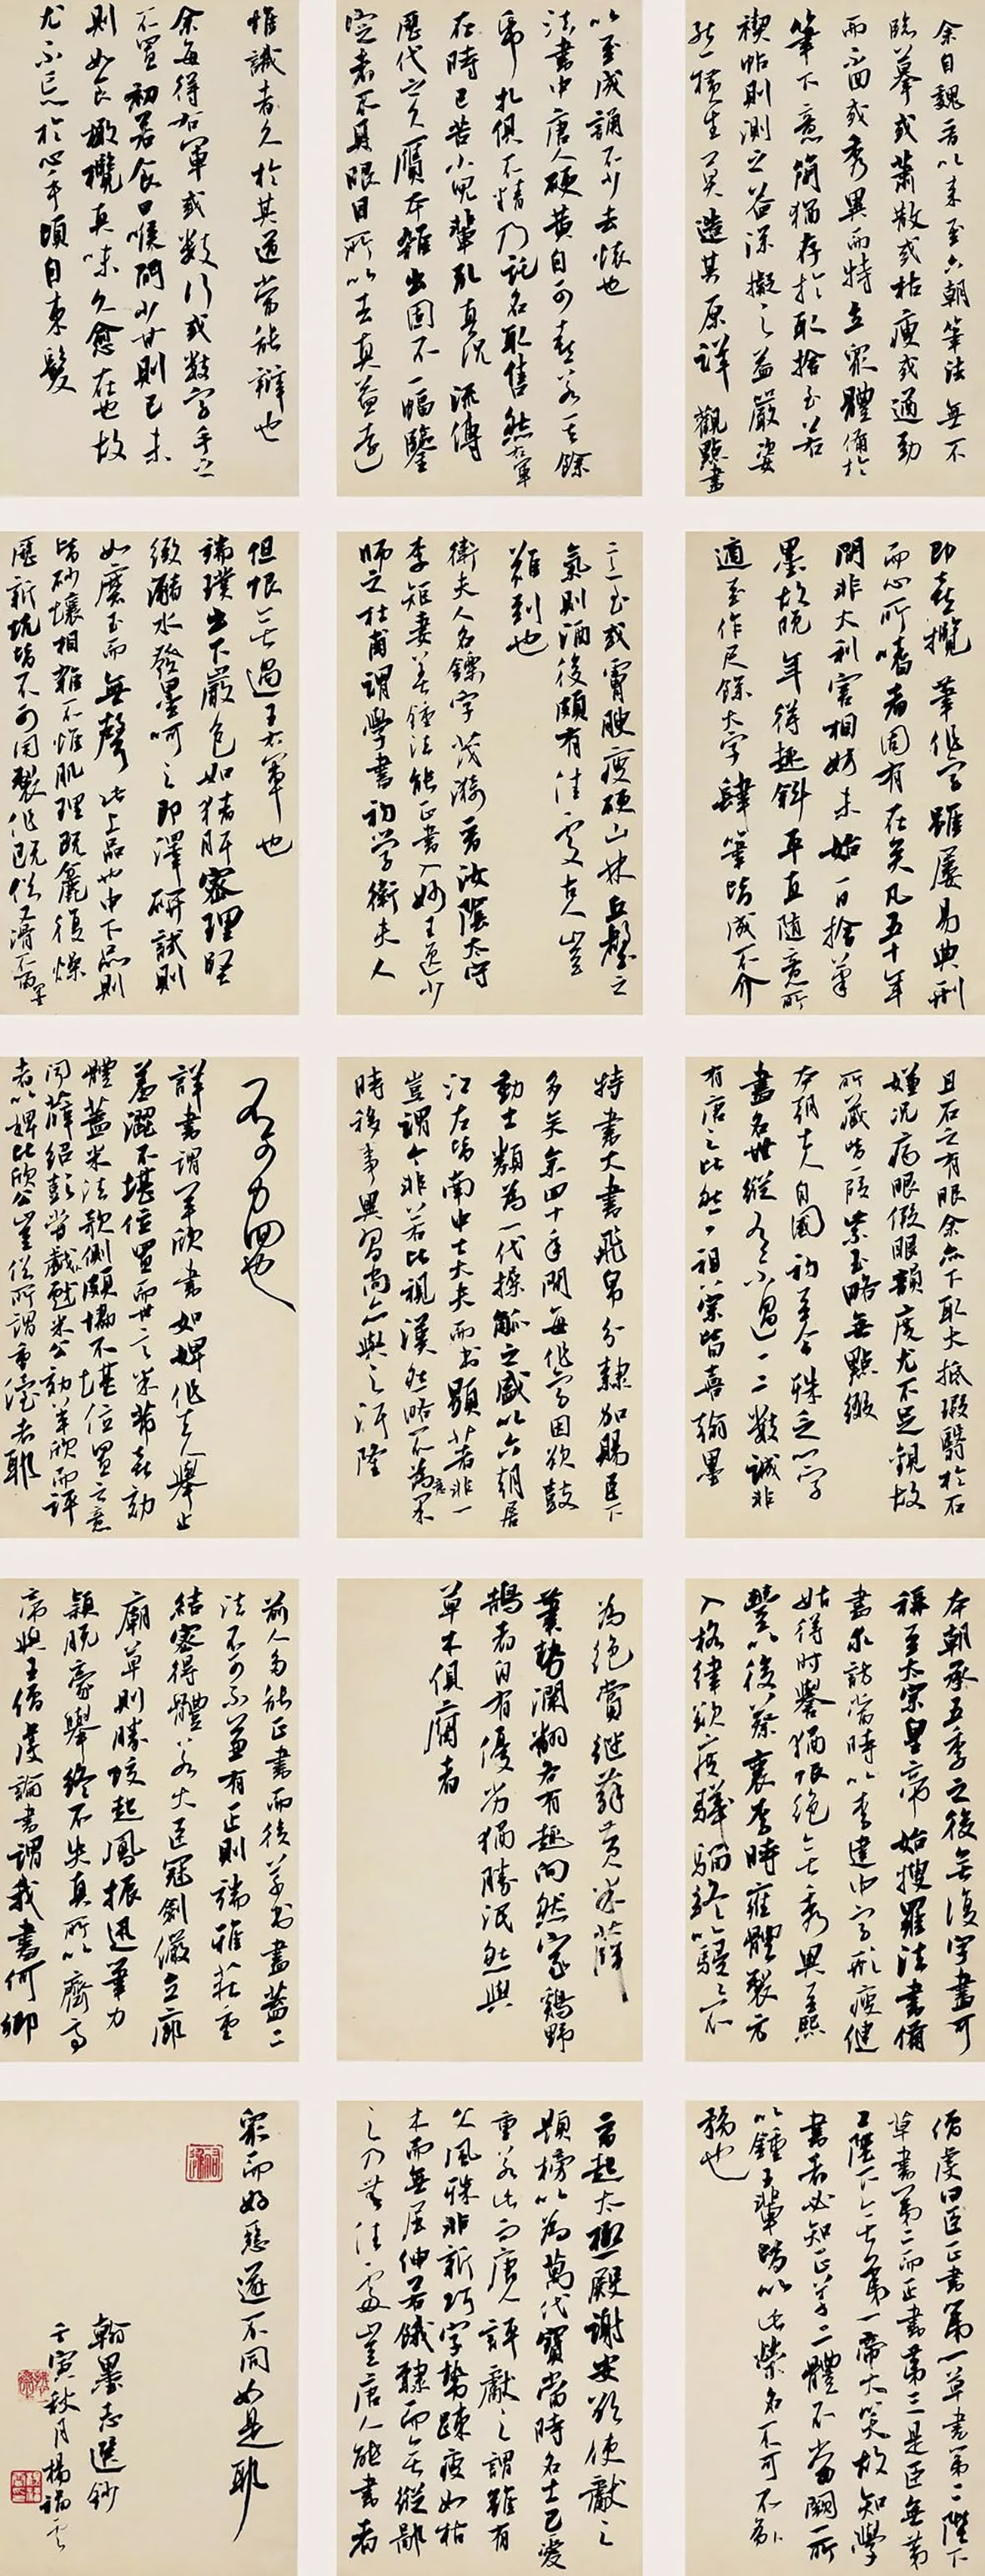 余自魏晉以來至六朝筆法無不
臨摹或蕭散或枯瘦或遒勁
而不回或秀異而特立眾體備於
筆下意簡猶存於取捨至若
禊帖則測之益深擬之益嚴姿
態橫生莫造其原詳觀點畫
以至成誦不少去懷也
法書中唐人硬黃自可喜若其餘
紙札俱不精乃託名取售然右軍
在時已苦小兒輩亂真況流傳
歷代之久贗本雜出固不一幅鑒
定者不具眼目所以去真益遠
惟識者久於其道當能辨也
余每得右軍或數行或數字手之
不置初若食口喉間少甘則已末
則如食橄欖真味久愈在也故
尤不忘於心手頃自束髮
即喜攬筆作字雖屢易典刑
而心所嗜者固有在矣凡五十年
間非大利害相妨未始一日捨筆
墨故晚年得趣斜平直隨意所
適至作尺餘大字肆筆皆成不介
意至或膚腴瘦硬山林丘壑之
氣則酒後頗有佳處古人豈
難到也
衛夫人名鑠字茂漪晉汝陰太守
李矩妻善鍾法能正書入妙王逸少
師之杜甫謂學書初學衛夫人
但恨無過王右軍也
端璞出下嚴色如豬肝密理堅
緻瀦水發墨呵之即澤研試則
如磨玉而無聲此上品也中下品則
皆砂壤相雜不惟肌理既麤復燥
歷新坑皆不可用製作既俗又滑不留墨
且石之有眼余亦不取大抵瑕翳於石
嫌況病眼假眼韻度尤不足觀故
所藏皆一段紫玉略無點綴
本朝士人自國初至今殊乏以字
畫名世縱有不過一二數誠非
有唐之比然一祖八宗皆喜翰墨
特書大書飛帛分隸加賜臣下
多矣余四十年間每作字因欲鼓
動士類為一代操觚之盛以六朝居
江左皆南中士大夫而書顯著非一
豈謂今非若比視漠然略不為意果
時移事異習尚亦與之汙隆
不可力回也
評書謂羊欣書如婢作夫人舉止
羞澀不堪位置而世言米芾喜効
體蓋米法欹側頗協不堪位置之意
聞薛紹彭嘗戲米公効羊欣而評
者以婢比欣公豈俗所謂重儓者耶
本朝承五季之後無復字畫可
稱至太宗皇帝始搜羅法書備
書求訪當時以李建中字形瘦健
姑得時譽猶恨絕無秀異至熙
豐以後蔡襄李時雍體製方
入格律欲度驊騮終以駸駸不
為絕賞繼蘇黃米薛
筆勢瀾翻各有趣向然家雞野
鵠者自有優劣猶勝泯然與
草木俱腐者
前人多能正書而後草書蓋二
法不可不兼有正則端雅莊重
結密得體若大臣冠劍儼立廊
廟草則騰蛟起鳳振迅筆力
穎脫豪舉終不失真所以齊高
帝與王僧虔論書謂我書何如卿
僧虔曰臣正書第一草書第二陛下
草書第二而正書第三是臣無第
三陛下無第一帝大笑故知學
書者必知正草二體不當闕一所
以鍾王輩皆以此榮名不可不務
務也
晉起太極殿謝安欲使獻之
題榜以為萬代寶當時名士已愛
重若此而唐人評獻之謂雖有
父風殊非新巧字勢疎瘦如枯
木而無屈伸若餓隸而無縱鄙
之乃無佳處豈唐人能書者
眾而好惡遂不同如是耶
翰墨志選鈔
壬寅秋月楊福雲